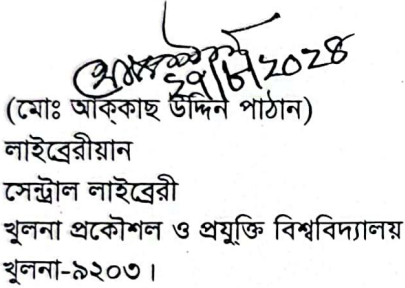 ২৭/৮/২০২৪
(মোঃ আক্কাছ উদ্দিন পাঠান)
লাইব্রেরীয়ান
সেন্ট্রাল লাইব্রেরী
খুলনা প্রকৌশল ও প্রযুক্তি বিশ্ববিদ্যালয়
খুলনা-৯২০৩।